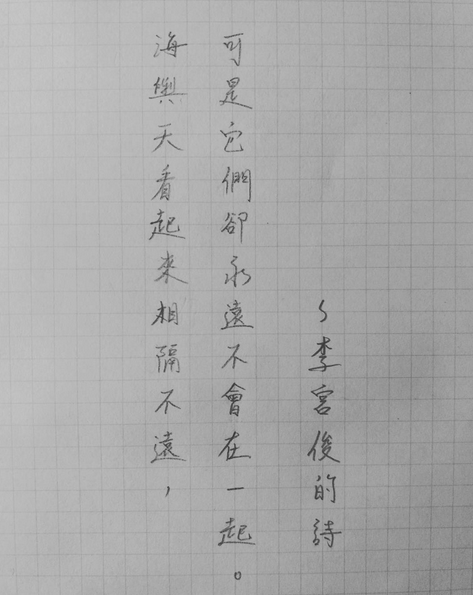 海與天看起來相隔不遠，
可是它們卻永遠不會在一起。
～李宮俊的詩